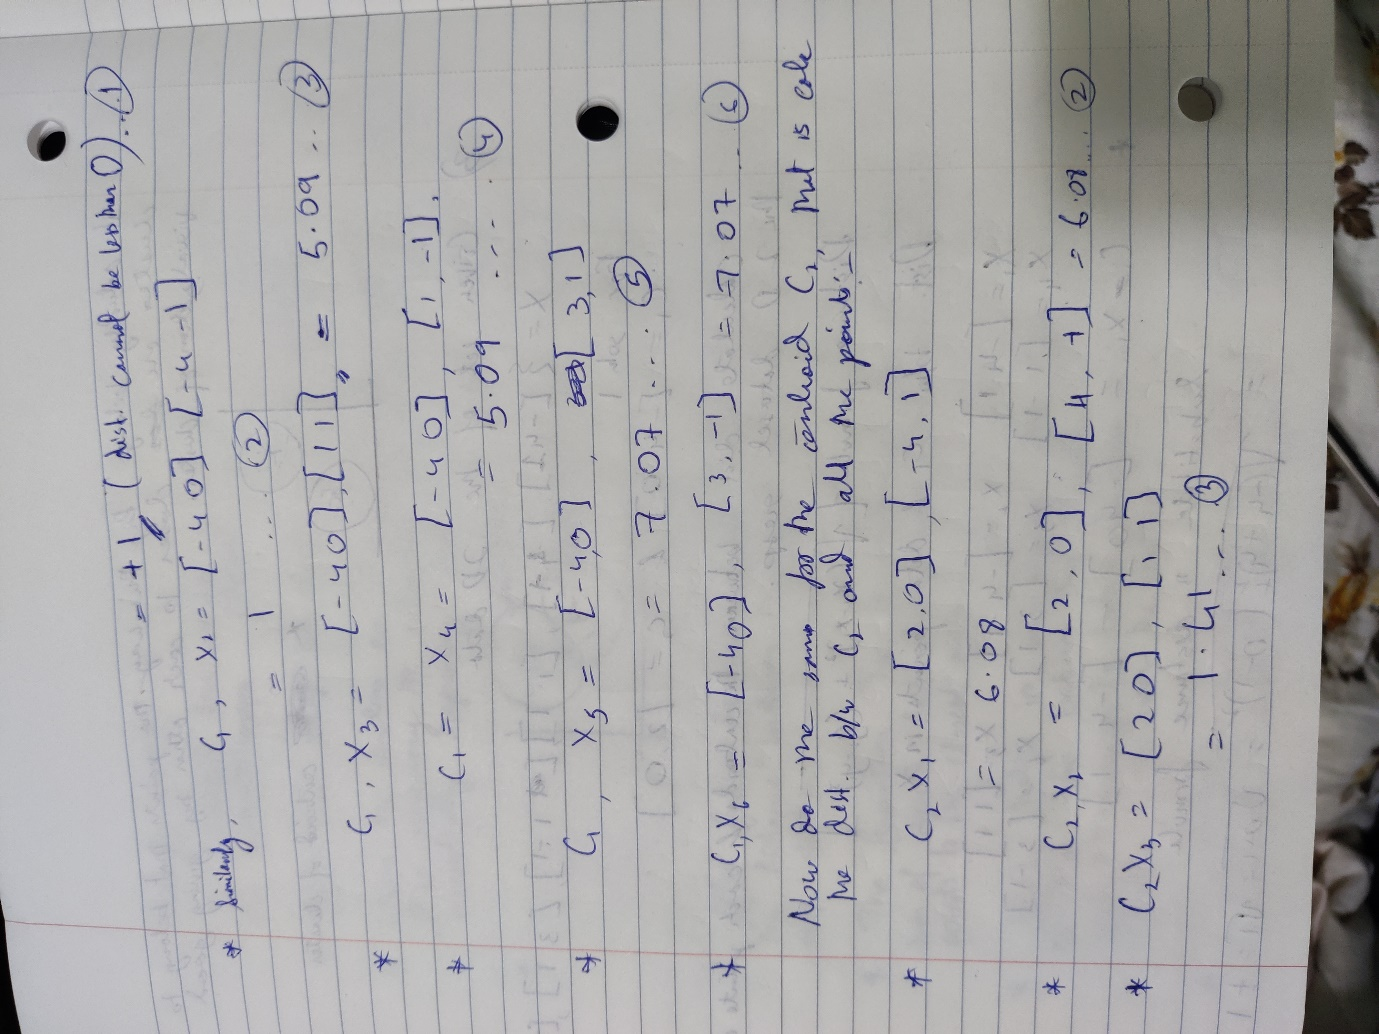 = +1 (dist. cannot be less than 0)...①
* Similarly, C₁, X₂ = [-4 0] [-4 -1]
= 1 .... ②
* C₁, X₃ = [-4 0], [1 1] = 5.09 .. ③
* C₁ = X₄ = [-4 0], [1, -1],
= 5.09 .... ④
* C₁, X₅ = [-4,0], [3,1]
7.07.... ⑤
* C₁, X₆ = [-4 0], [3, -1] = 7.07 .. ⑥
Now do the same for the centroid C₂, that is calc
the dist. b/w C₂ and all the points:-
* C₂ X₁ = [2,0], [-4, 1]
= 6.08
* C₂, X₂ = [2,0], [4, +] = 6.08... ②
* C₂ X₃ = [2 0], [1 1]
= 1.41... ③